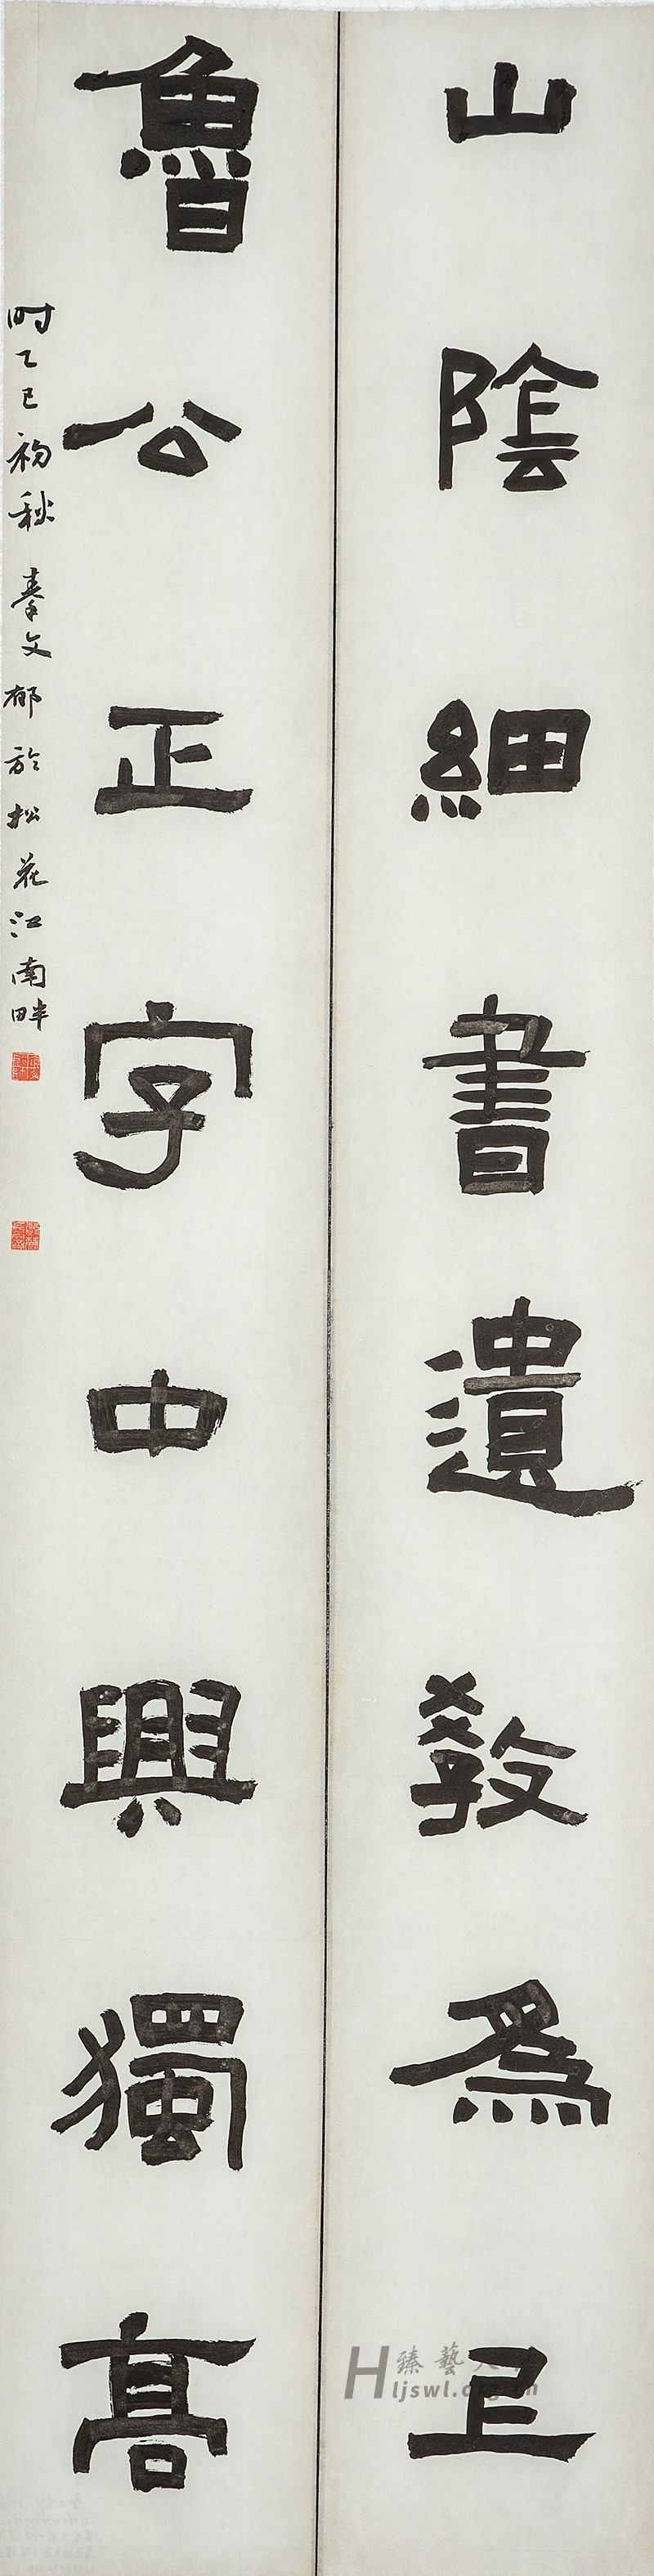 山陰細書遺教為上
魯公正字中興獨高
时乙巳初秋 秦文郁於松花江南畔
H 臻藝
ljswl.org.cn